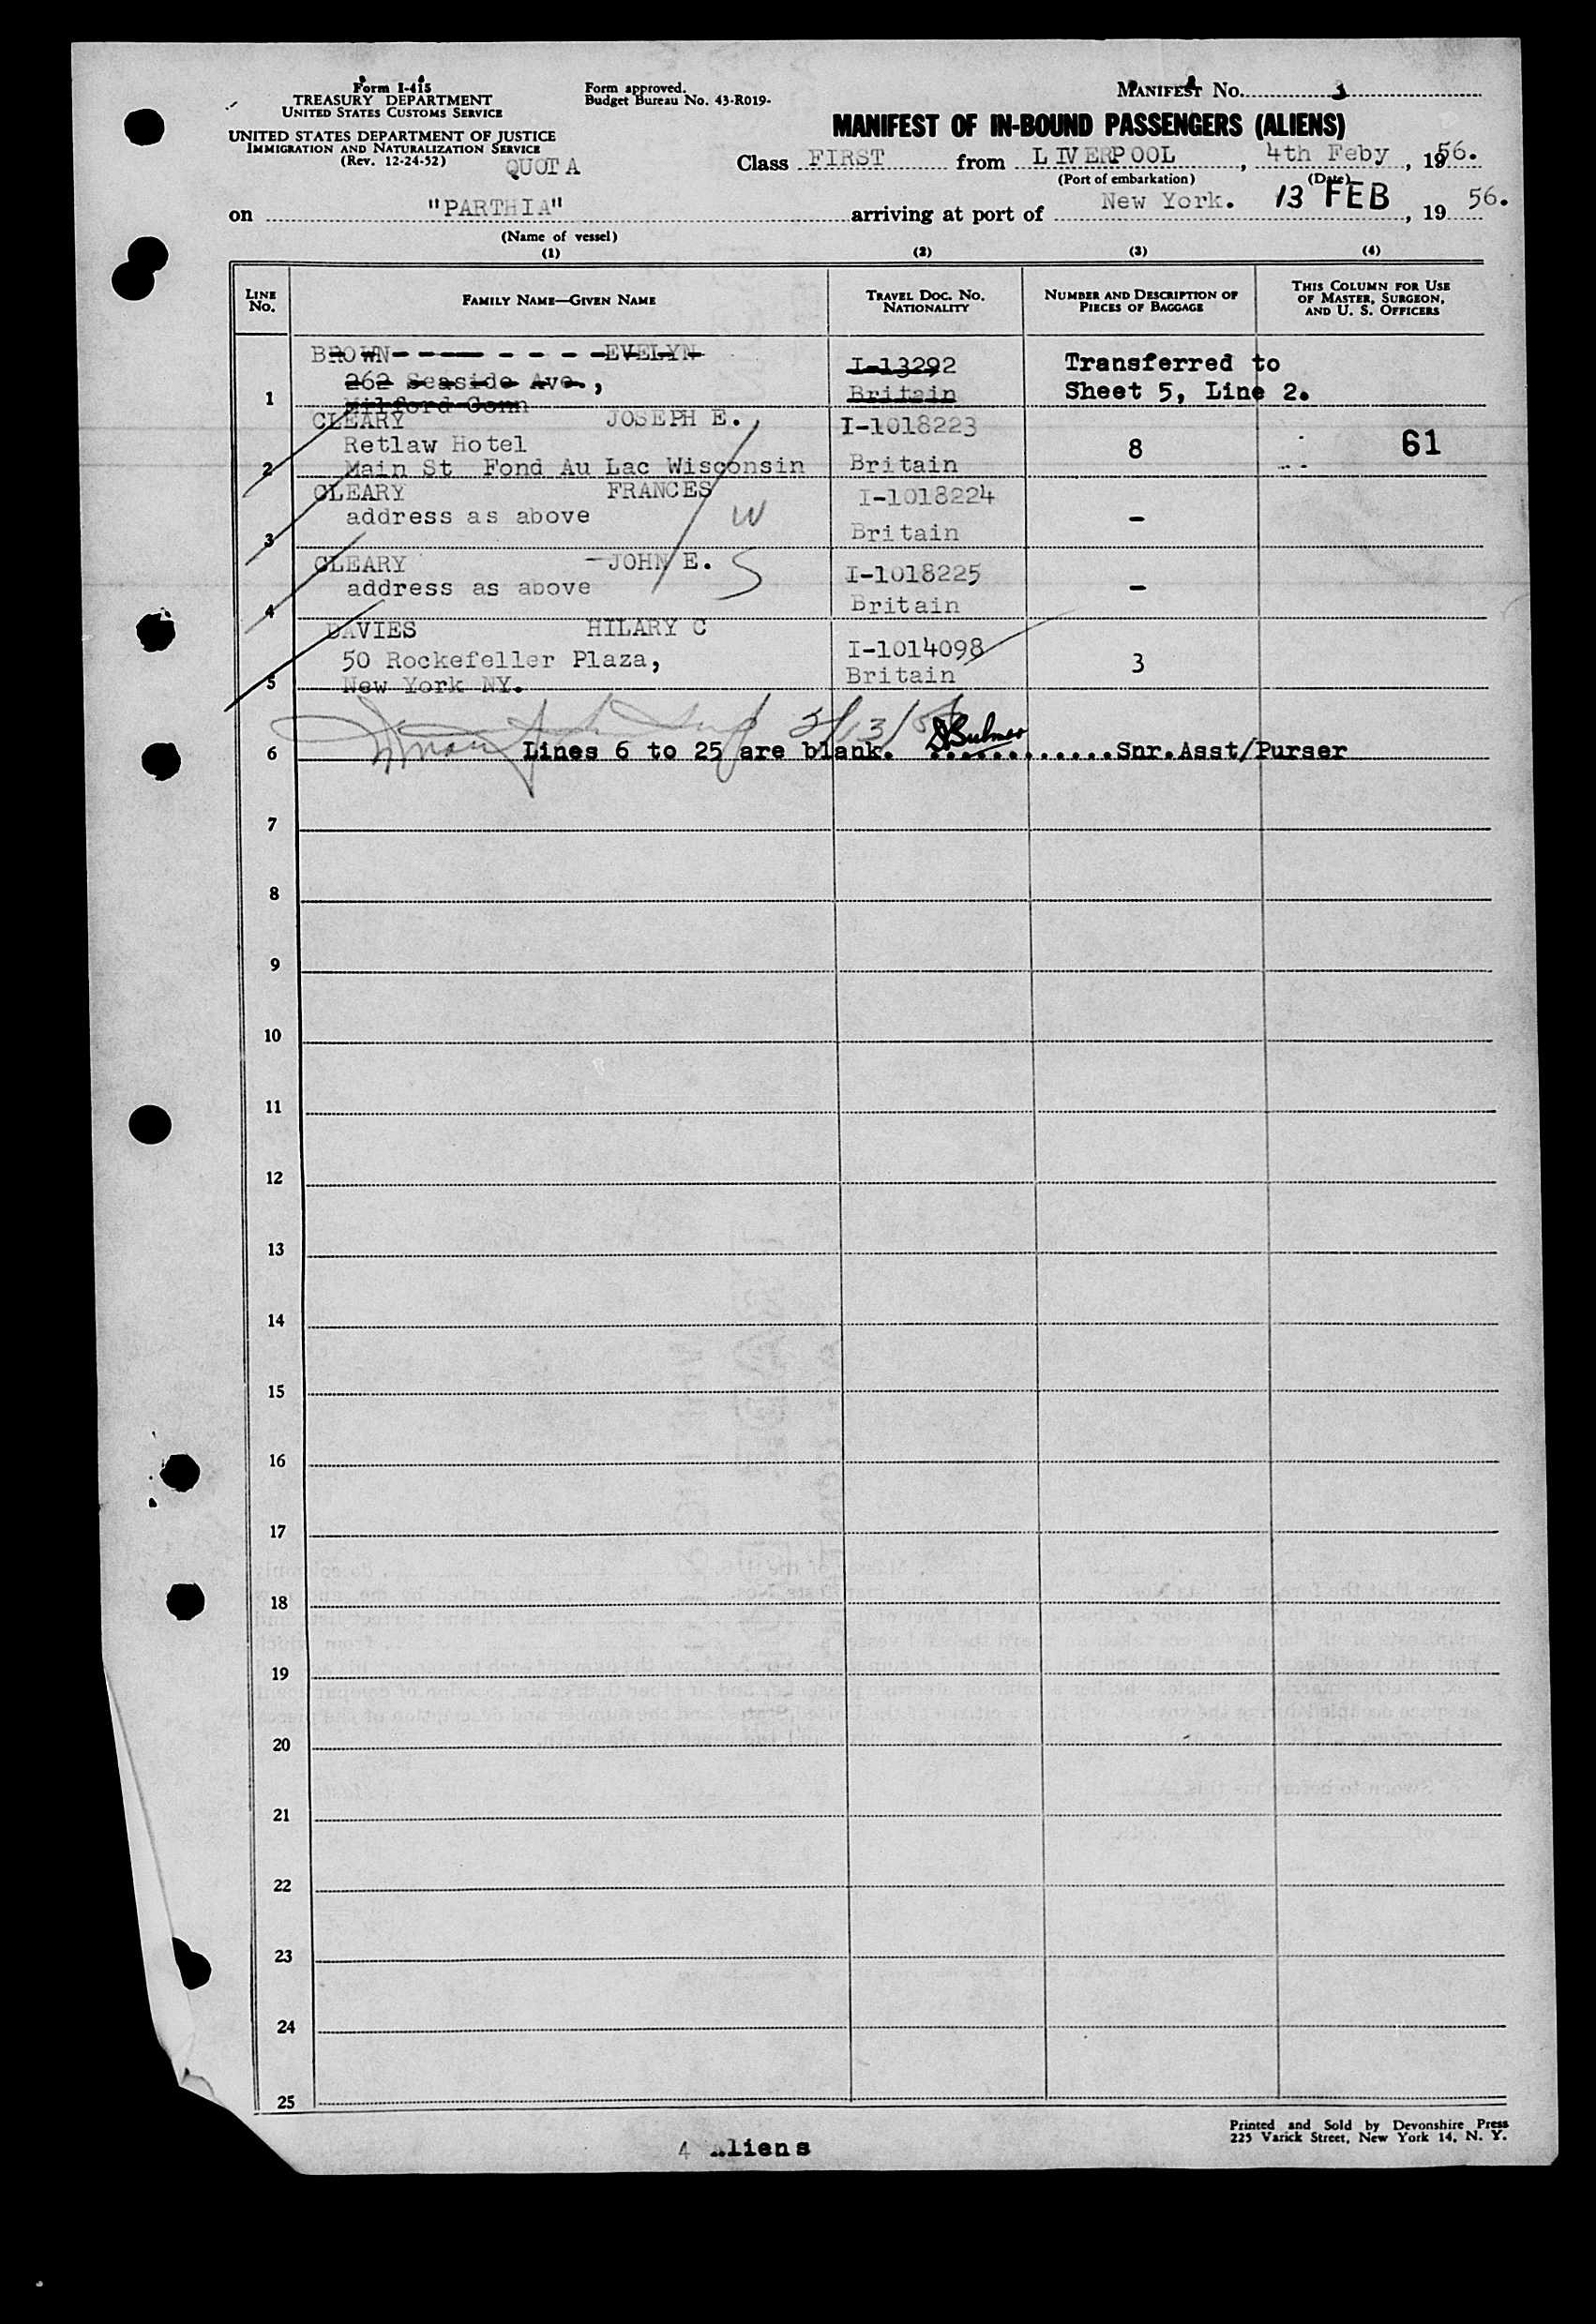 Form I-415
TREASURY DEPARTMENT
UNITED STATES CUSTOMS SERVICE
UNITED STATES DEPARTMENT OF JUSTICE
IMMIGRATION AND NATURALIZATION SERVICE
(Rev. 12-24-52)
QUOTA
Form approved.
Budget Bureau No. 43-R019-
MANIFEST No. 3
MANIFEST OF IN-BOUND PASSENGERS (ALIENS)
Class FIRST from LIVERPOOL, 4th Feby, 1956.
(Port of embarkation) (Date)
on "PARTHIA" arriving at port of New York. 13 FEB, 19 56.
(Name of vessel)
(1) (2) (3) (4)
LINE NO.
FAMILY NAME—GIVEN NAME
TRAVEL DOC. NO.
NATIONALITY
NUMBER AND DESCRIPTION OF
PIECES OF BAGGAGE
THIS COLUMN FOR USE
OF MASTER, SURGEON,
AND U. S. OFFICERS
BROWN EVELYN I-13292 Transferred to
1 262 Seaside Ave., Britain Sheet 5, Line 2.
Milford Conn
CLEARY JOSEPH E. I-1018223
Retlaw Hotel 8 61
2 Main St Fond Au Lac Wisconsin Britain
CLEARY FRANCES I-1018224
address as above W -
3 Britain
CLEARY JOHN E. S I-1018225
address as above -
4 Britain
DAVIES HILARY C I-1014098
50 Rockefeller Plaza, 3
5 New York NY. Britain
2/13/56
6 Lines 6 to 25 are blank. DBulmer Snr.Asst/Purser
7
8
9
10
11
12
13
14
15
16
17
18
19
20
21
22
23
24
25
4 Aliens
Printed and Sold by Devonshire Press
225 Varick Street, New York 14, N. Y.